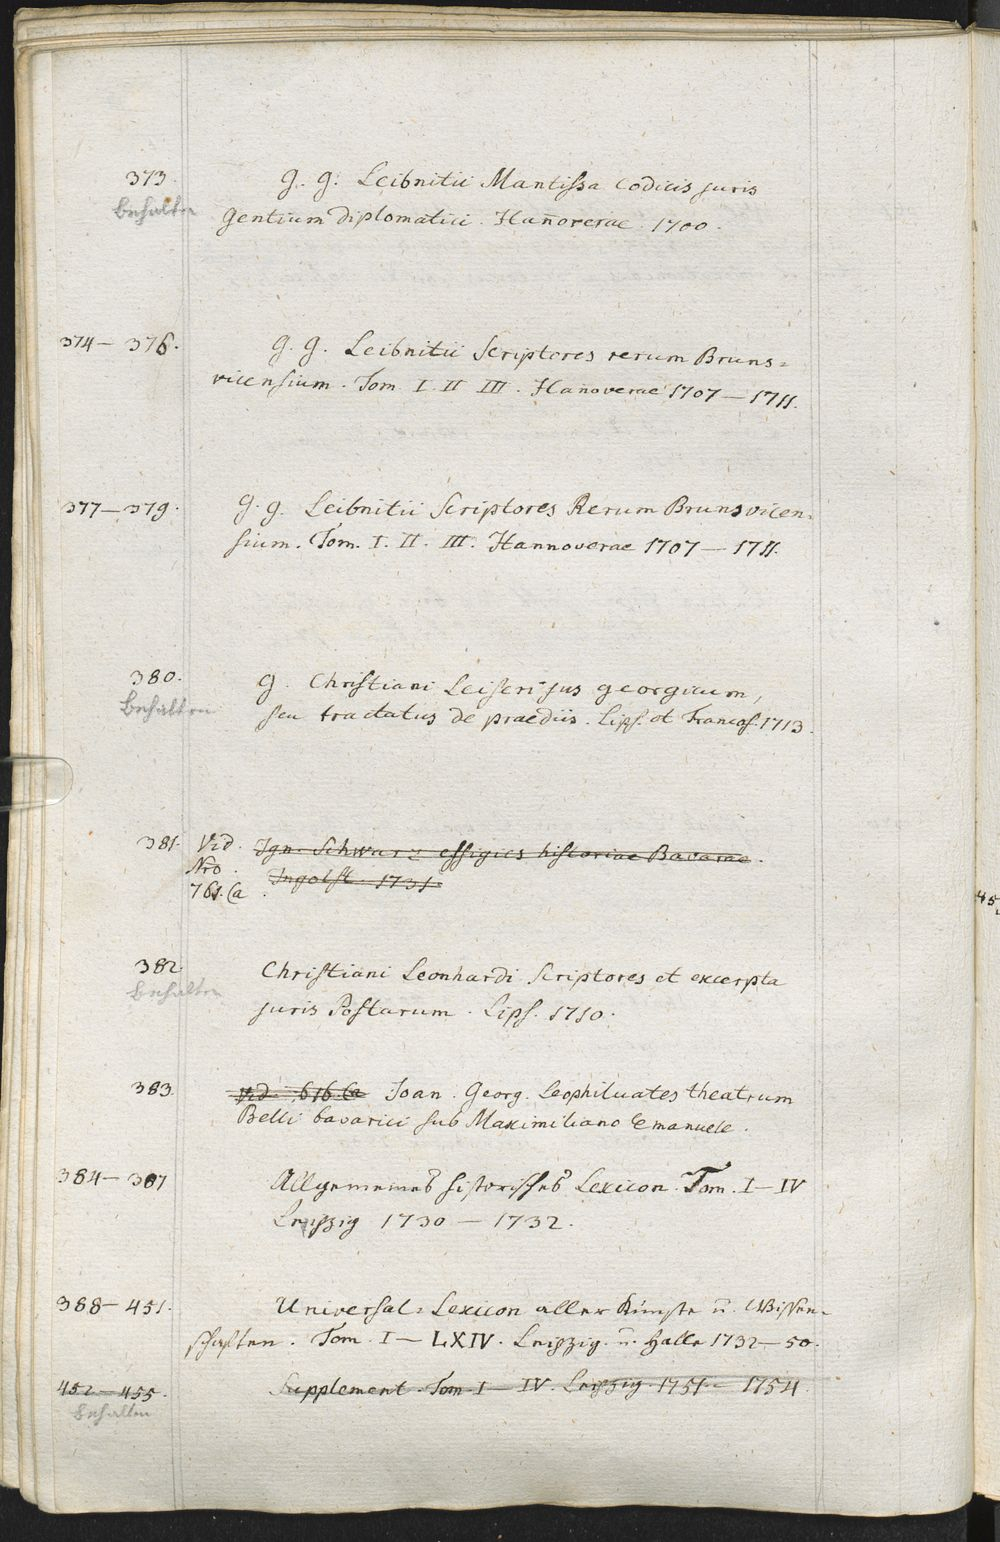 373. G. G. Leibnitii Mantissa codicis juris
behalten gentium diplomatici. Hañoverae. 1700.
374 — 376. G. G. Leibnitii Scriptores rerum Bruns=
vicensium. Tom. I. II III. Hañoverae 1707 — 1711.
377 — 379. G. G. Leibnitii Scriptores Rerum Brunsvicen=
sium. Tom. I. II. III. Hannoverae 1707 — 1711.
380. G. Christiani Leiseri jus georgicum,
behalten seu tractatus de praediis. Lips. et Francof. 1713.
381. Vid. Ign. Schwarz effigies historiae Bavarae.
Nro. Ingolst. 1731.
761. Ca.
382. Christiani Leonhardi Scriptores et excerpta
behalten juris Postarum. Lips. 1710.
383. Vid. 616. Ca Joan. Georg. Leophiluates theatrum
Belli bavarici sub Maximiliano Emanuele.
384 — 387 Allgemeines historisches Lexicon. Tom. I — IV
Leipzig 1730 — 1732.
388 — 451. Universal= Lexicon aller Künste u. Wissen=
schaften. Tom. I — LXIV. Leipzig. u. Halle 1732 — 50.
452 — 455. Supplement. Tom. I — IV. Leipzig. 1751 — 1754.
behalten
45